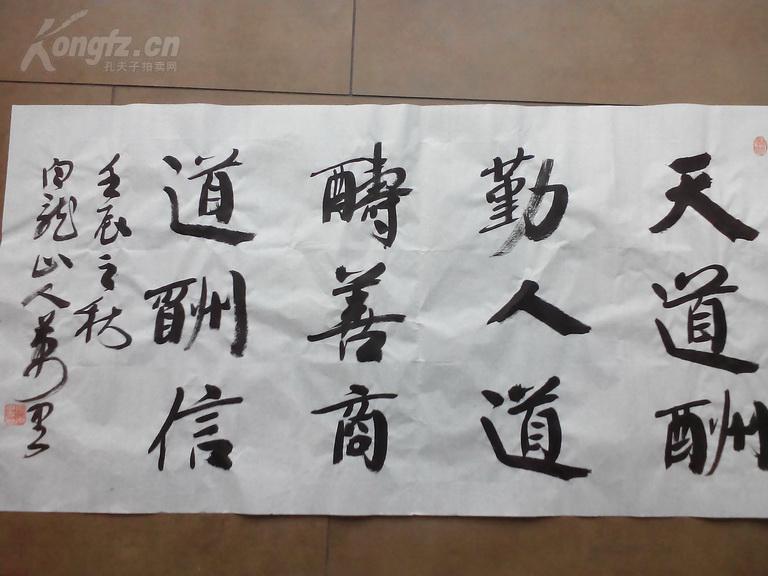 天道酬
勤人道
醻善商
道酬信
壬辰之秋
白龍山人
Kongfz.cn
孔夫子拍卖网